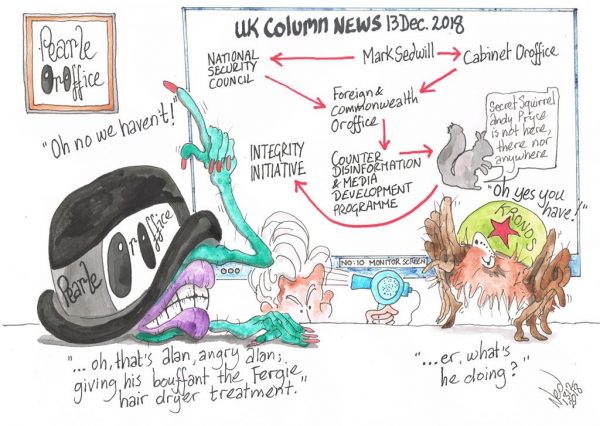 Pearle
OrOffice
UK COLUMN NEWS 13 Dec. 2018
NATIONAL
SECURITY
COUNCIL
Mark Sedwill
Cabinet Oroffice
Foreign &
Commonwealth
Oroffice
INTEGRITY
INITIATIVE
COUNTER
DISINFORMATION
& MEDIA
DEVELOPMENT
PROGRAMME
Secret Squirrel
andy Pryce
is not here,
there nor
anywhere
"Oh no we haven't!"
"Oh yes you
have!"
KRONOS
Pearle
OrOffice
NO:10 MONITOR SCREEN
"...oh, that's alan, angry alan;
giving his bouffant the Fergie
hair dryer treatment."
"...er, what's
he doing?"
2018